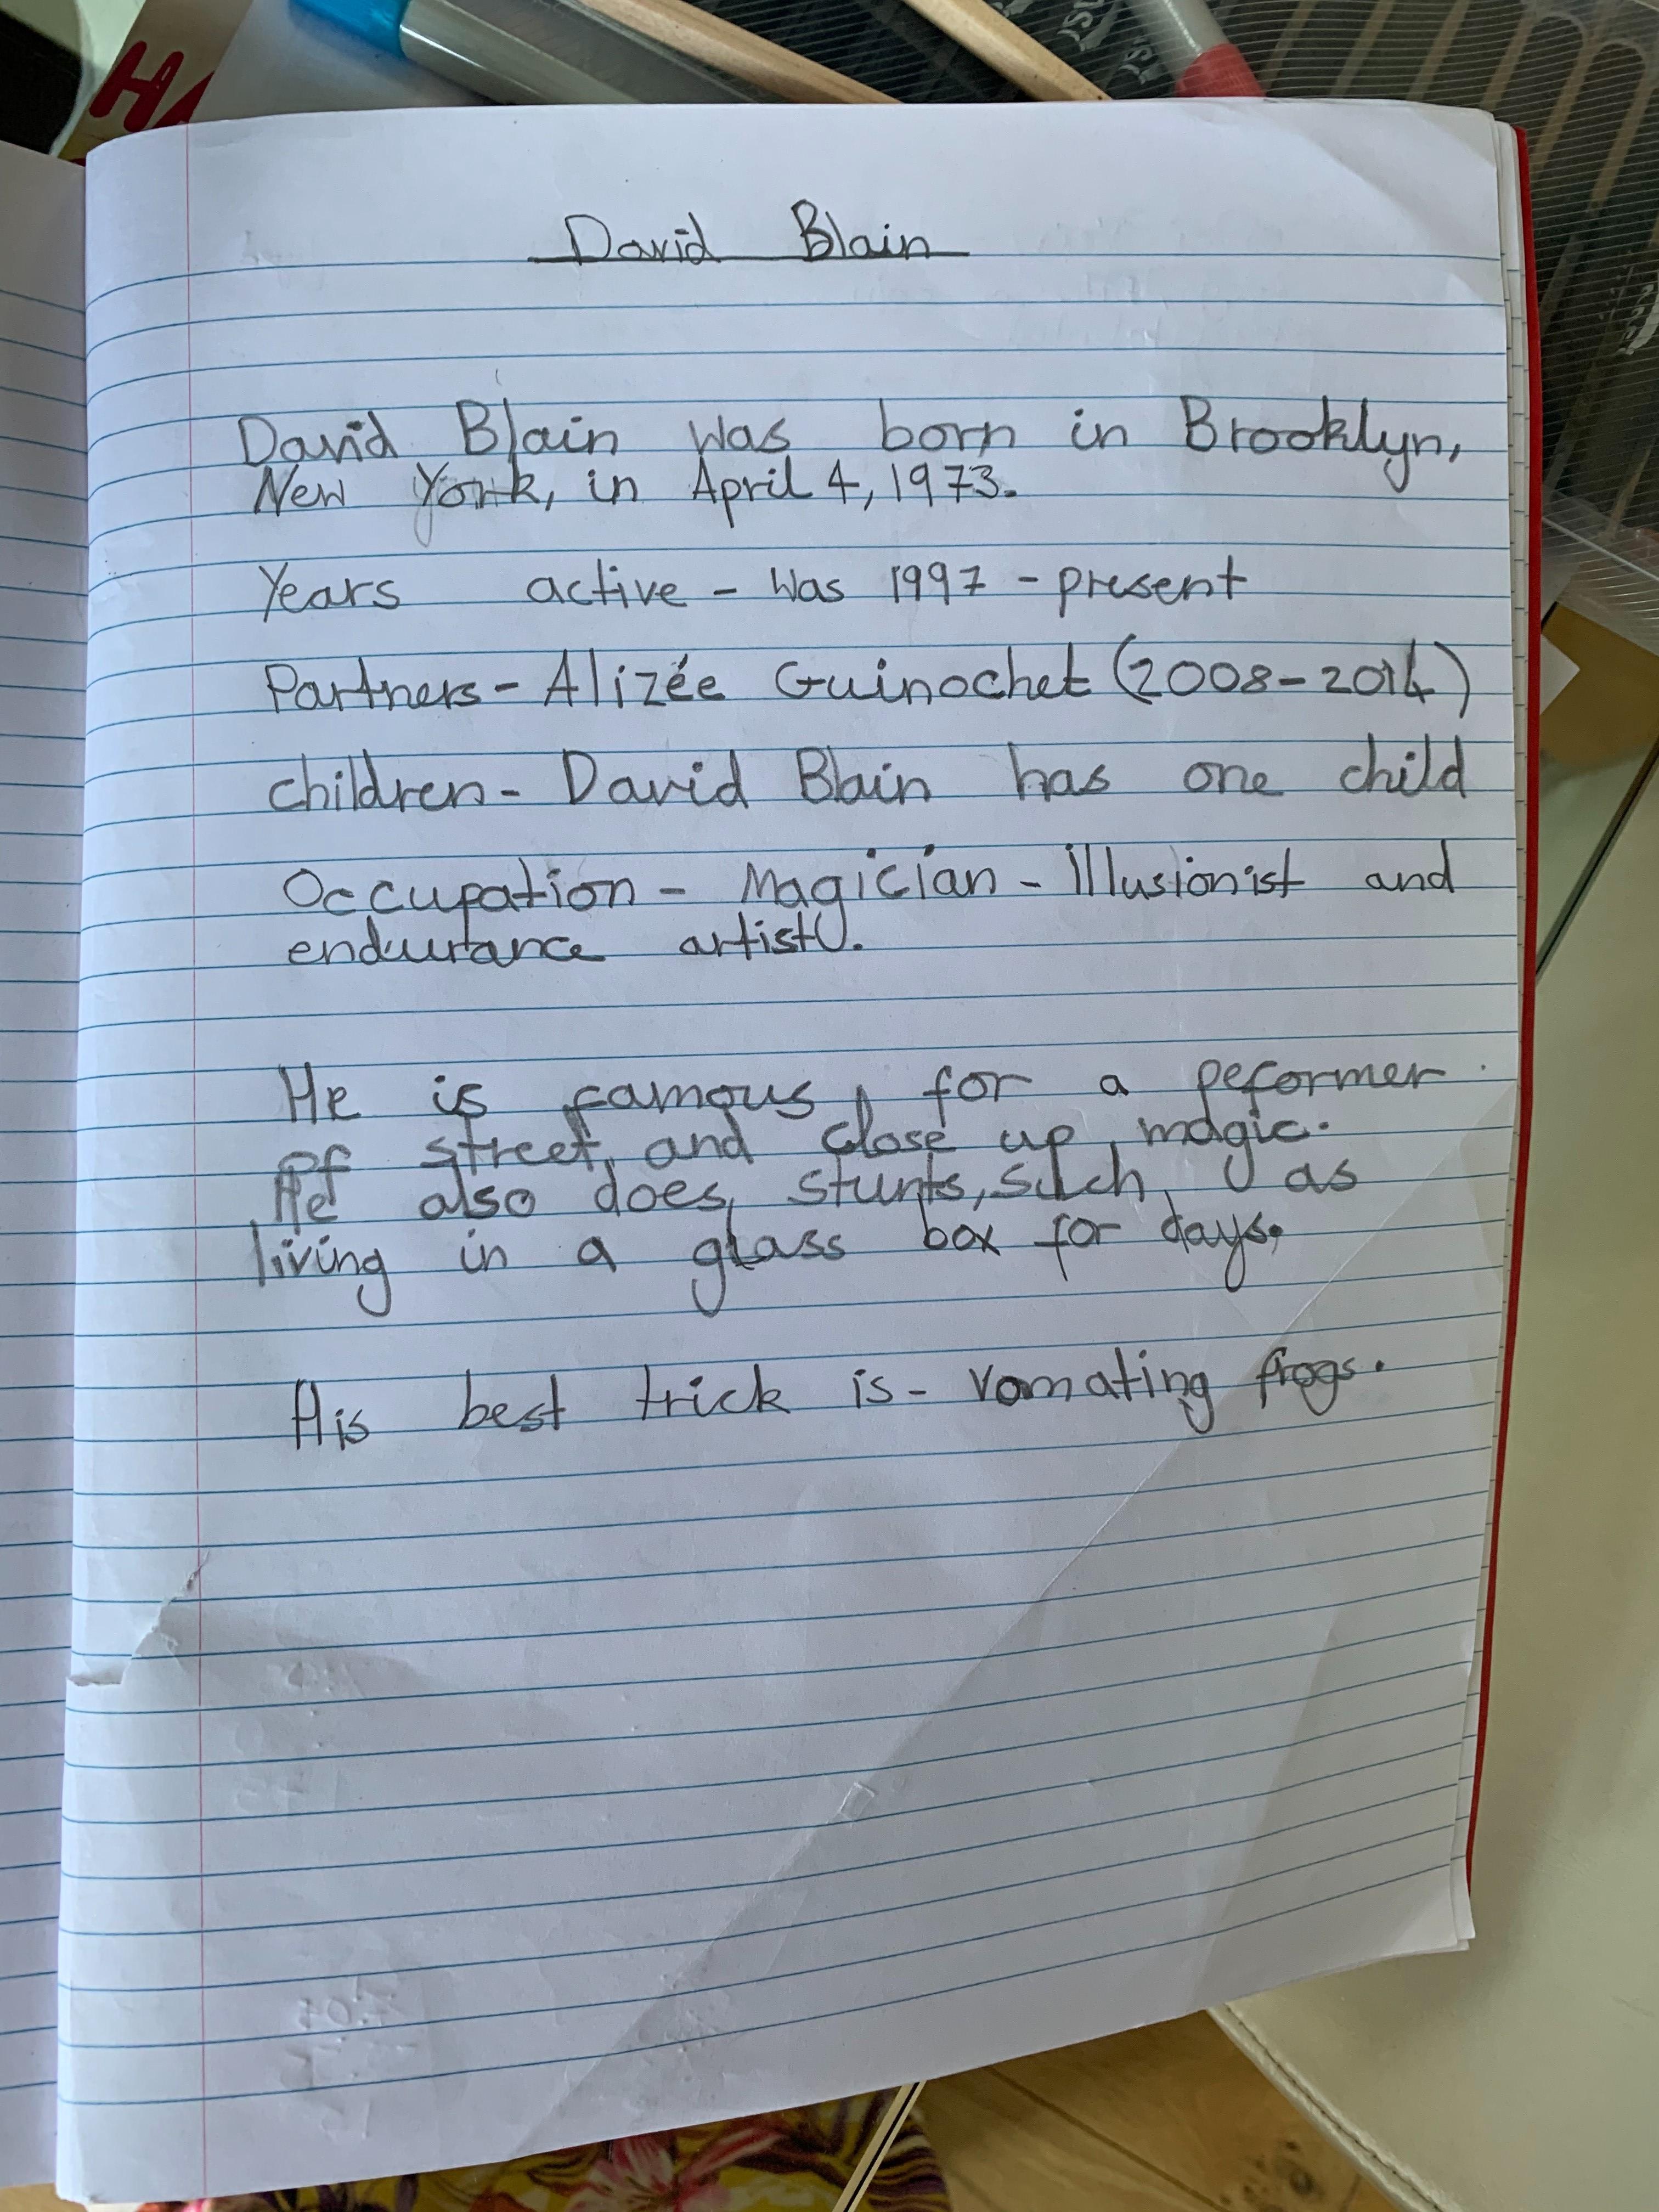 HA
David Blain
David Blain was born in Brooklyn,
New York, in April 4, 1973.
Years active - Was 1997 - present
Partners - Alizée Guinochet (2008-2014)
children - David Blain has one child
Occupation - Magician - illusionist and
endurance artist.
He is famous for a peformer
of street, and close up, magic.
He also does, stunts, such, as
living in a glass box for days.
His best trick is - vomating frogs.